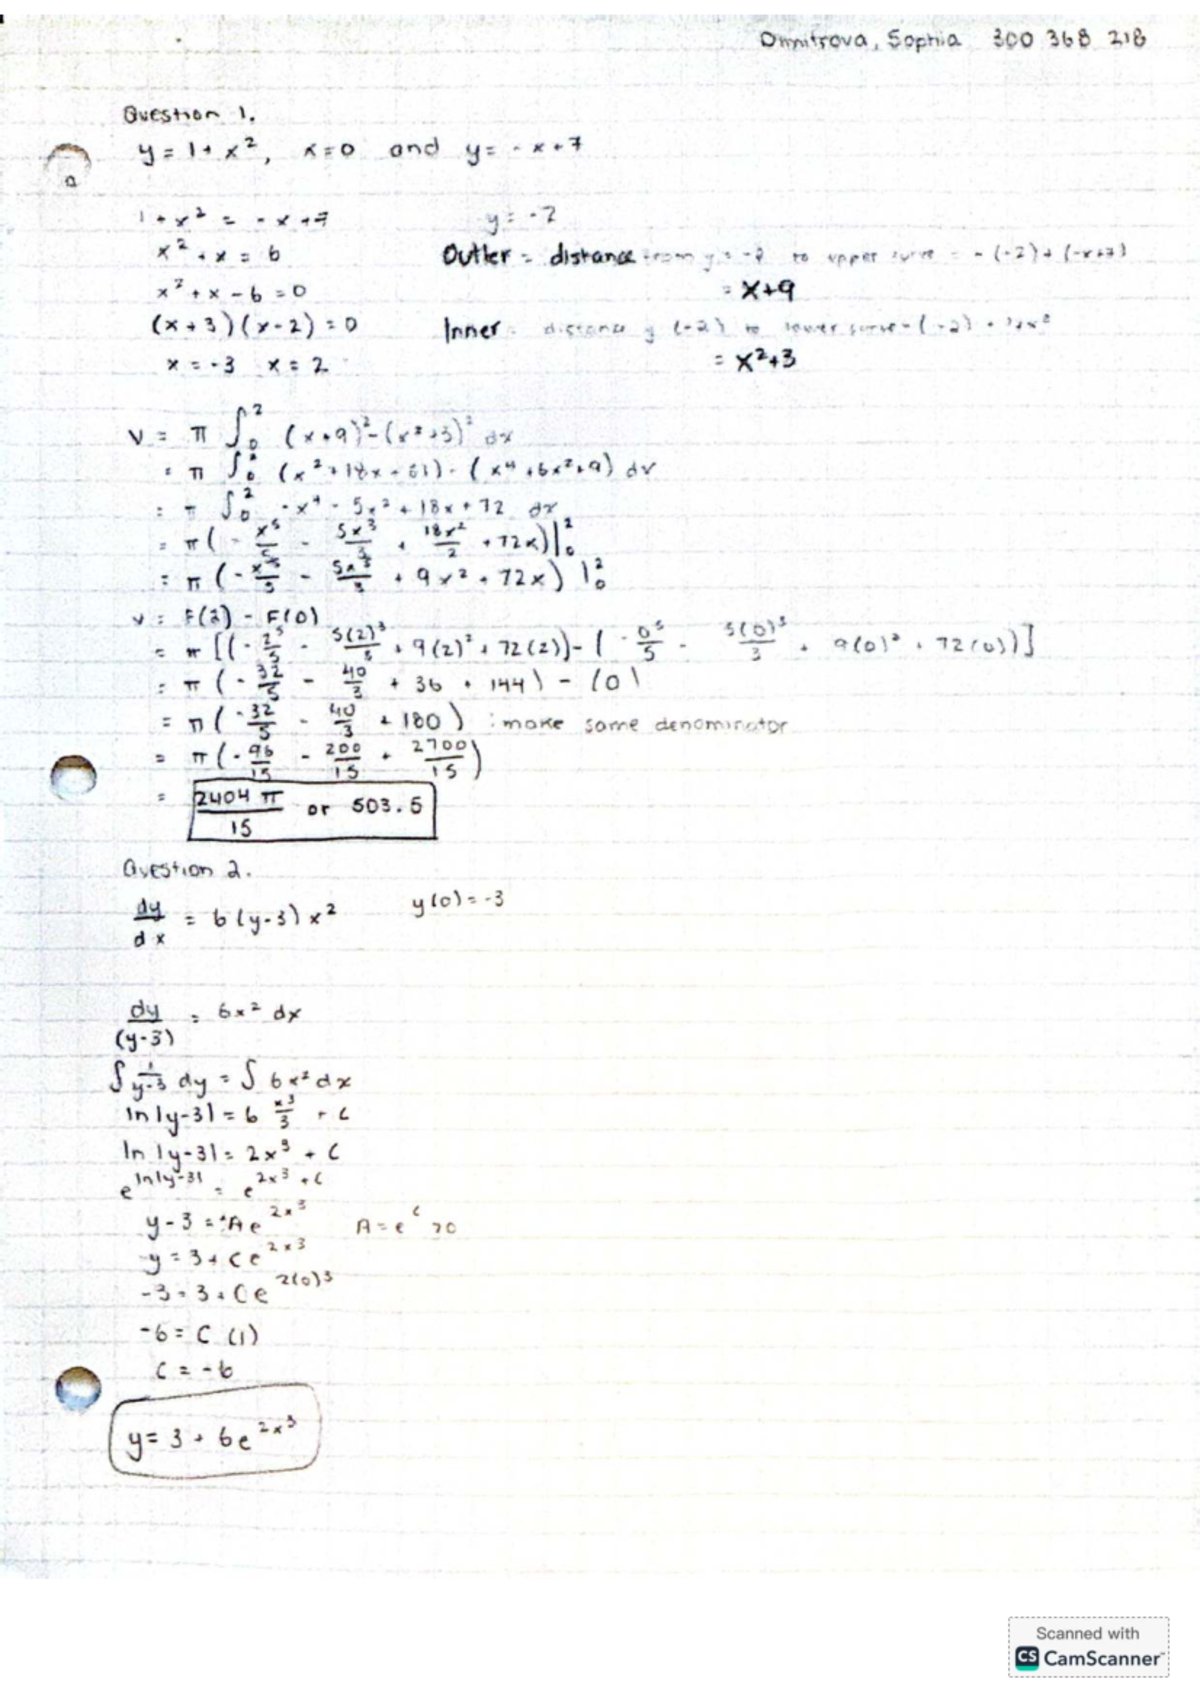 Dimitrova, Sophia 300 368 218
Question 1.
y = 1 + x², x = 0 and y = - x + 7
1 + x² = - x + 7
x² + x = 6
x² + x - 6 = 0
(x + 3)(x - 2) = 0
x = -3 x = 2
y = -2
Outter = distance from y = -2 to upper curve = - (-2) + (-x+7)
= x+9
Inner = distance y (-2) to lower curve - (-2) + 1+x²
= x²+3
V = π ∫₀² (x+9)² - (x²+3)² dx
= π ∫₀² (x² + 18x + 81) - (x⁴ + 6x² + 9) dx
= π ∫₀² -x⁴ - 5x² + 18x + 72 dx
= π (- x⁵/5 - 5x³/3 + 18x²/2 + 72x)|₀²
= π (- x⁵/5 - 5x³/3 + 9x² + 72x) |₀²
V = F(2) - F(0)
= π [(- 2⁵/5 - 5(2)³/3 + 9(2)² + 72(2)) - ( - 0⁵/5 - 5(0)³/3 + 9(0)² + 72(0))]
= π (- 32/5 - 40/3 + 36 + 144) - (0)
= π (- 32/5 - 40/3 + 180) : make same denominator
= π (- 96/15 - 200/15 + 2700/15)
= 2404 π/15 or 503.5
Question 2.
dy/dx = 6(y-3) x² y(0) = -3
dy/(y-3) = 6x² dx
∫ 1/y-3 dy = ∫ 6x² dx
ln|y-3| = 6 x³/3 + C
ln |y-3| = 2x³ + C
e^ln|y-3| = e^2x³ + C
y - 3 = ±Ae^2x³ A = e^C >0
y = 3 + Ce^2x³
-3 = 3 + Ce^2(0)³
-6 = C (1)
C = -6
y = 3 + 6e^2x³
Scanned with
CS CamScanner